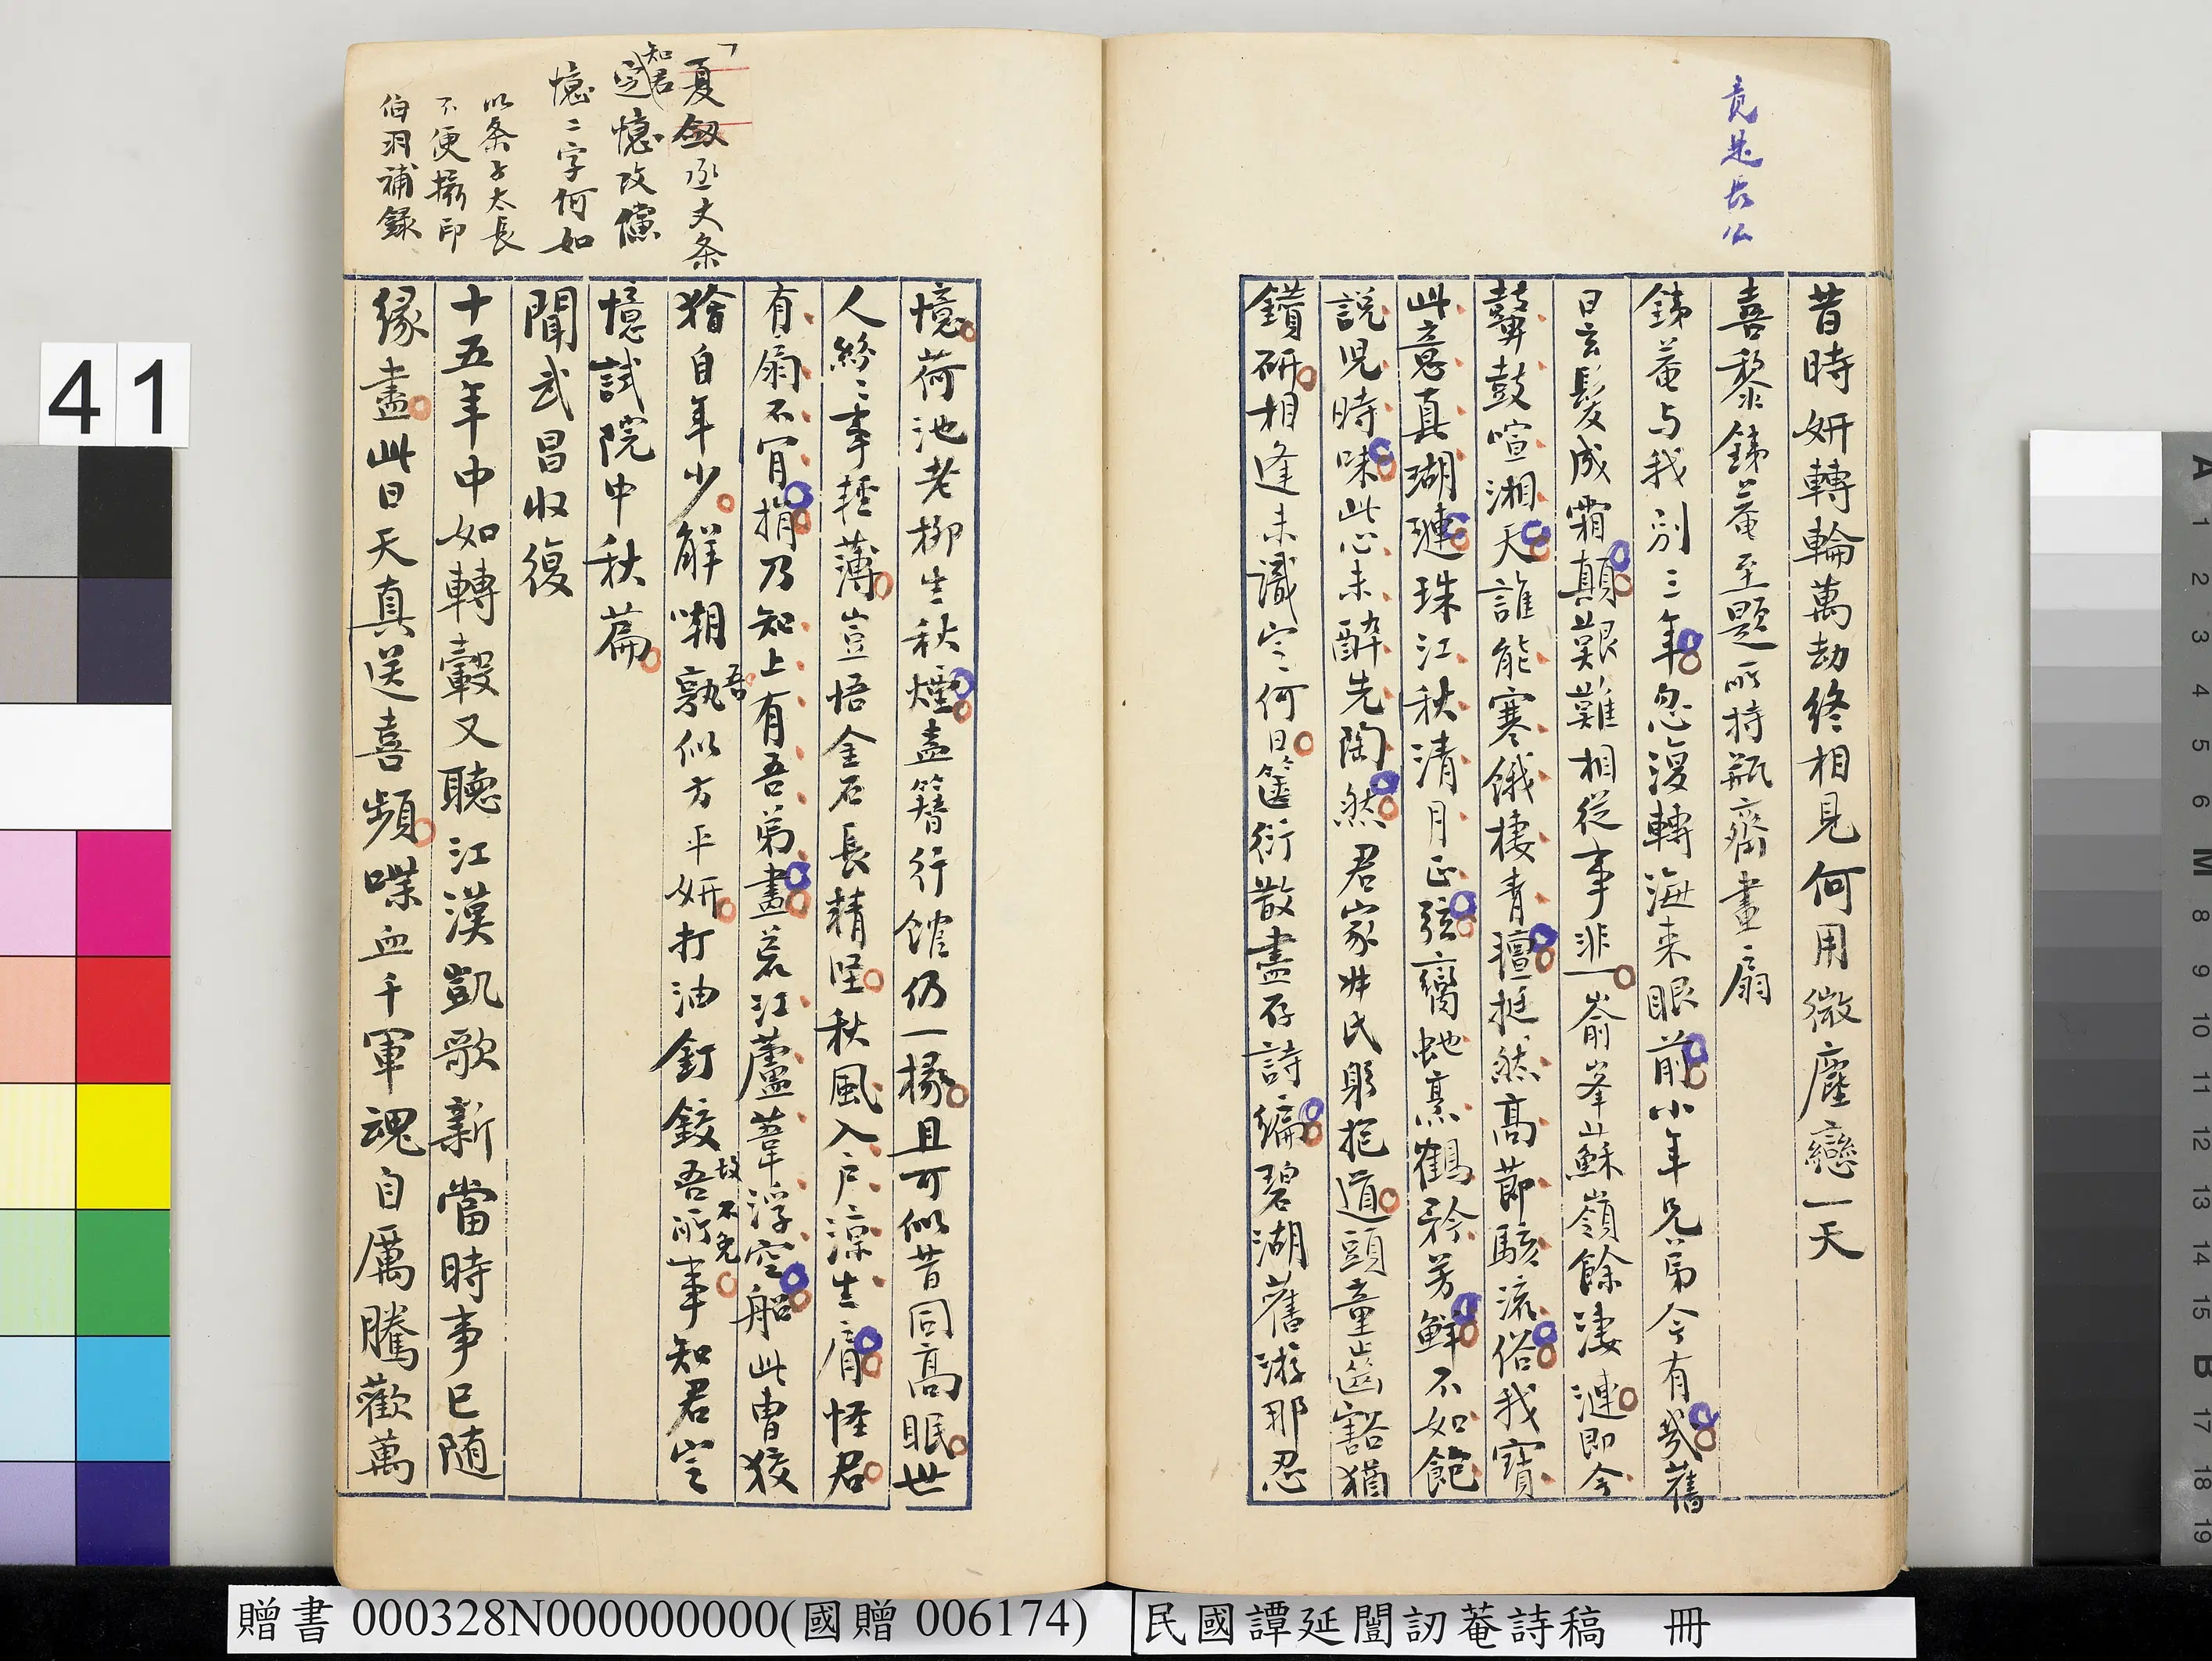 竟是長公
昔時妍轉輪萬劫終相見何用微塵戀一天
喜黎銕菴至題所持瓶齋畫扇
銕菴与我別三年忽漫轉海來眼前小年兄弟今有幾舊
日玄髮成霜顛艱難相從事非一嵛峯蘇嶺餘淒漣即今
鼙鼓喧湘天誰能寒餓棲青氊挺然高節駭流俗我寶
此意真瑚璉珠江秋清月正弦臠虵烹鶴矜芳鮮不如飽
說兒時味此心未醉先陶然君家叔氏躬抱道頭童齒豁猶
鑽研相逢未識定何日篋衍散盡存詩編碧湖舊游那忍
憶荷池老柳生秋煙盍簪行館仍一椽且可似昔同高眠世
人紛紛事輕薄豈悟金石長精堅秋風入户涼生肩怪君
有扇不肯捐乃知上有吾弟畫荒江蘆葦浮空船此曹狡
獪自年少解嘲孰似方平妍打油釘鉸吾所事知君豈
吾
故不免
憶試院中秋篇
聞武昌收復
十五年中如轉轂又聽江漢凱歌新當時事已隨
緣盡此日天真送喜頻喋血千軍魂自厲騰歡萬
夏劍丞丈条
定憶改儻
知君
憶二字何如
以条子太長
不便攝印
伯羽補録
41
贈書 000328N000000000(國贈 006174)
民國譚延闓訒菴詩稿 冊
A 1 2 3 4 5 6 M 8 9 10 11 12 13 14 15 B 17 18 19